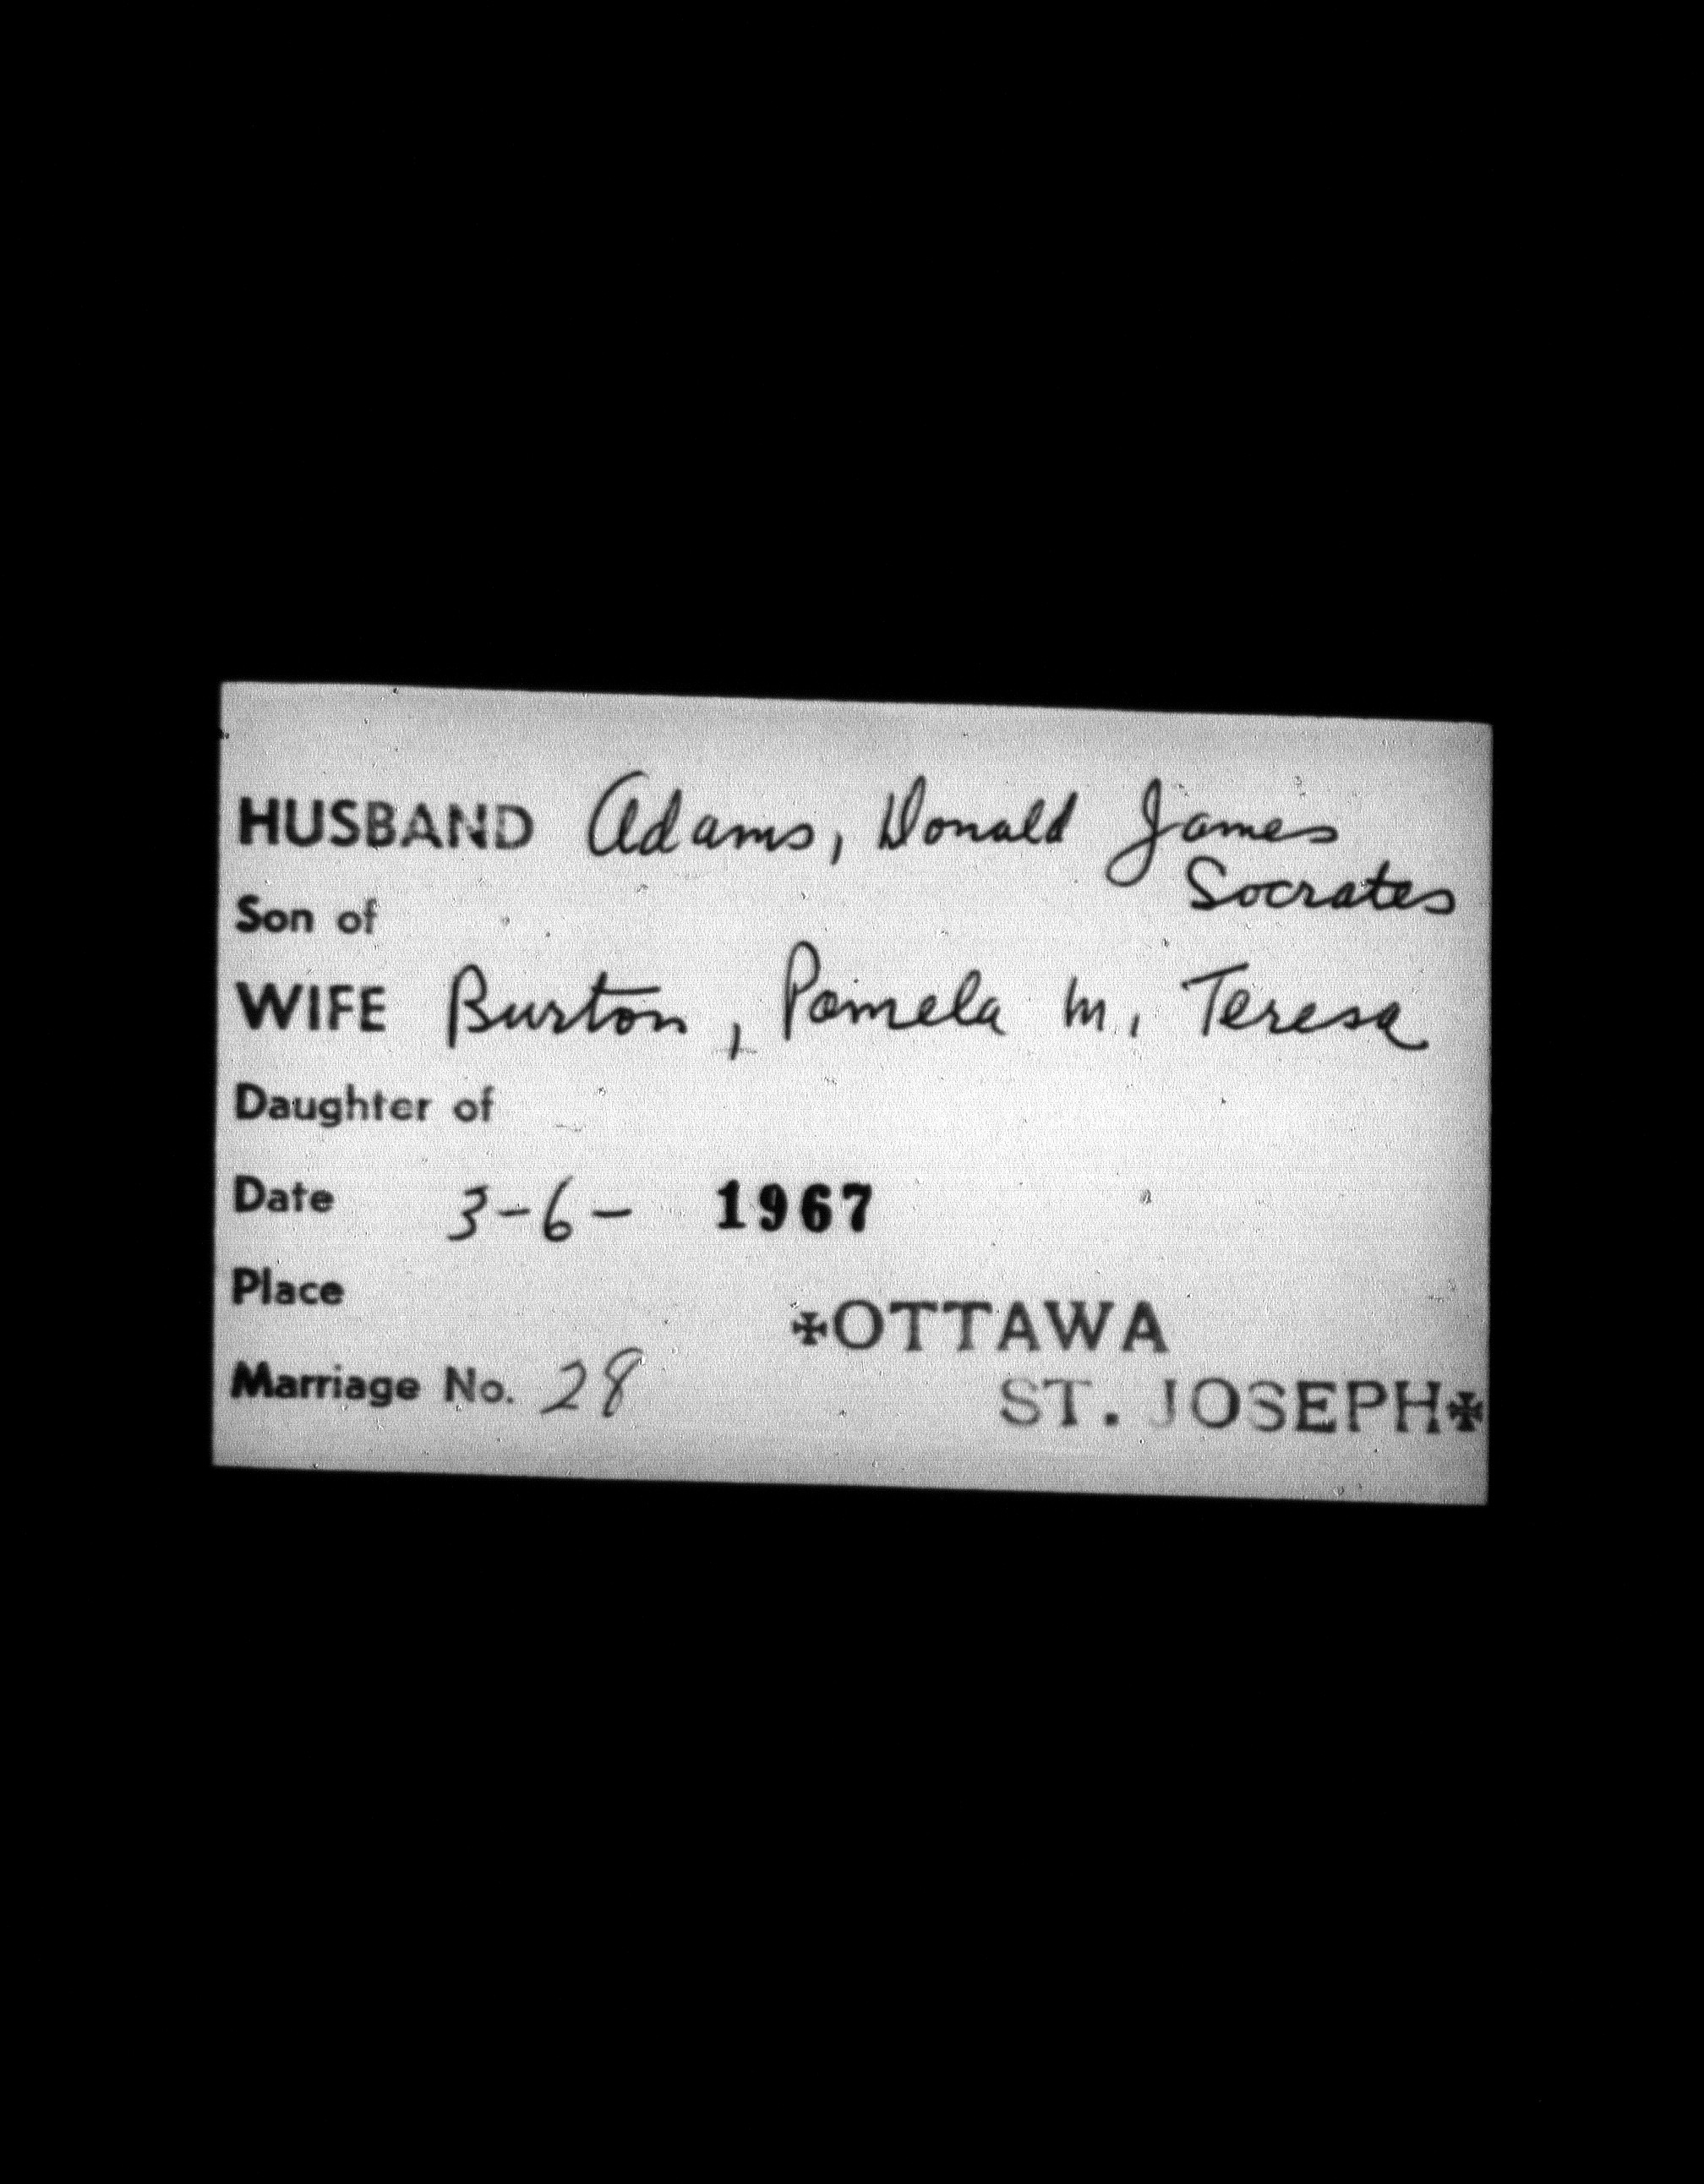 HUSBAND Adams, Donald James
Socrates
Son of
WIFE Burton, Pamela M. Teresa
Daughter of
Date 3-6- 1967
Place
✠OTTAWA
Marriage No. 28
ST. JOSEPH✠